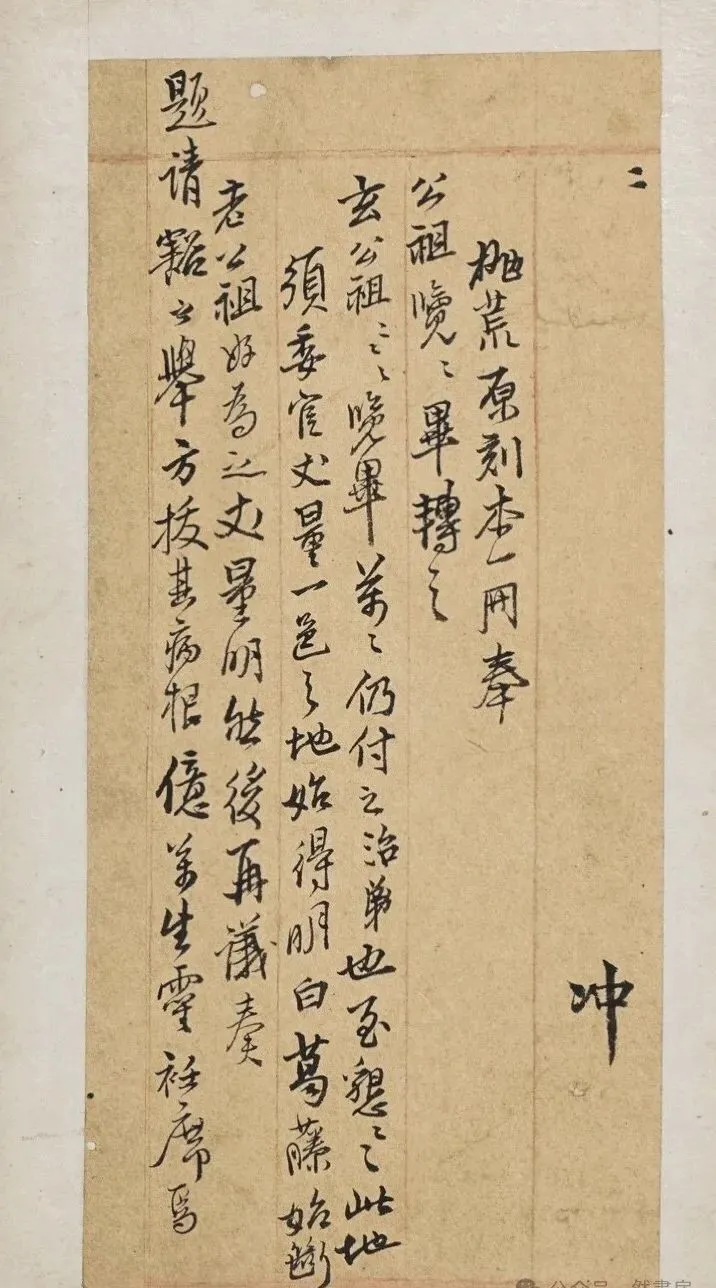 二
冲
桃荒原刻本一册奉
公祖覽〻畢轉之
玄公祖〻〻覽畢萬〻仍付之治弟也至懇〻〻此地
須委官丈量一邑之地始得明白葛藤始斷
老公祖好為之丈量明然後再議奏
題請豁之舉方拔其病根億萬生靈袵席焉
公众号
書房